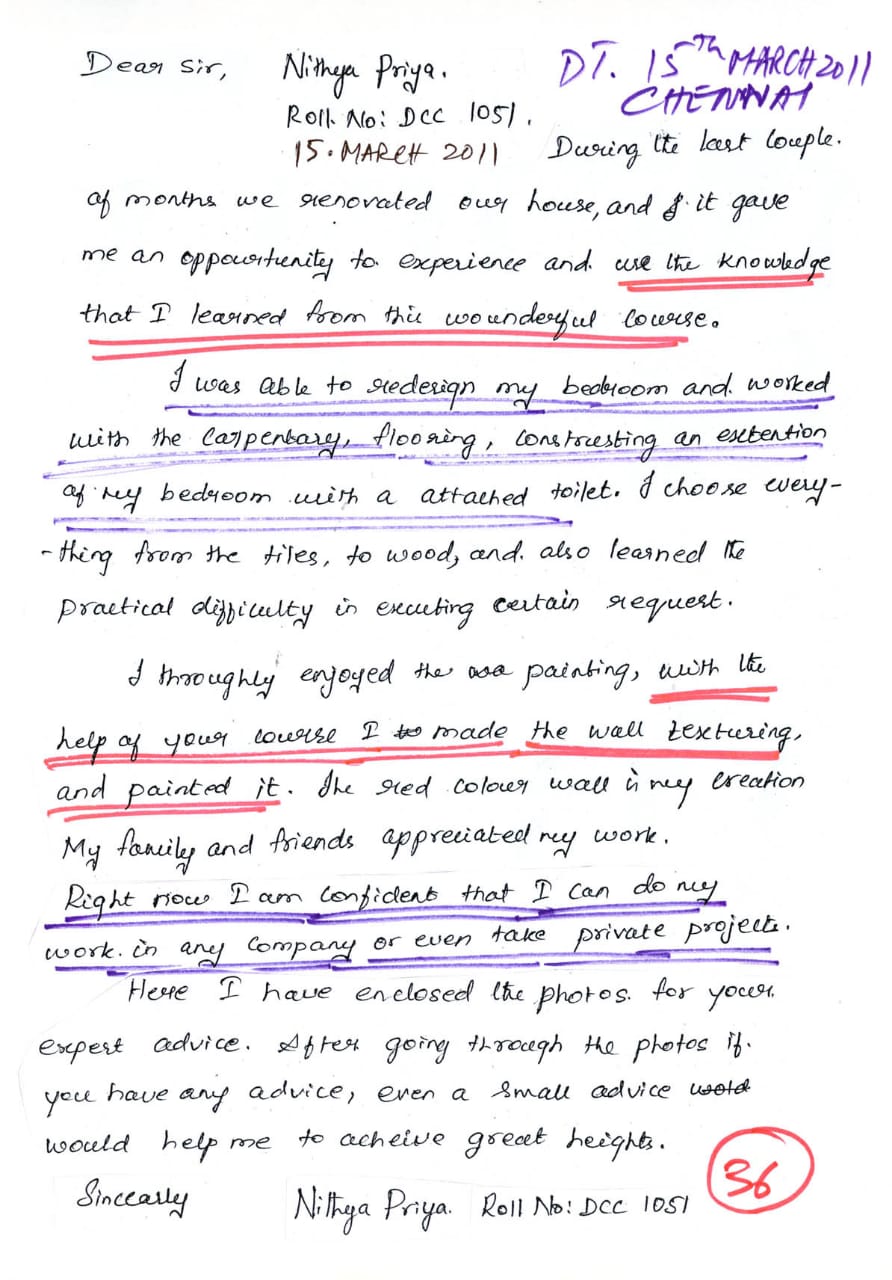 Dear Sir, Nithya Priya. DT. 15TH MARCH 2011
Roll. No: DCC 1051. CHENNAI
15. MARCH 2011 During the last couple.
of months we renovated our house, and it gave
me an oppourtunity to experience and. use the knowledge
that I learned from this wounderful course.
I was able to redesign my bedroom and. worked
with the Carpentary, flooring, constructing an extention
of my bedroom with a attached toilet. I choose every-
-thing from the tiles, to wood, and. also learned the
practical difficulty in executing certain request.
I throughly enjoyed the painting, with the
help of your course I made the wall texturing,
and painted it. The red colour wall is my creation
My family and friends appreciated my work.
Right now I am confident that I can do my
work. in any company or even take private projects.
Here I have enclosed the photos. for your.
expert advice. After going through the photos if.
you have any advice, even a small advice
would help me to acheive great heights.
Sincearly Nithya Priya. Roll No: DCC 1051
36